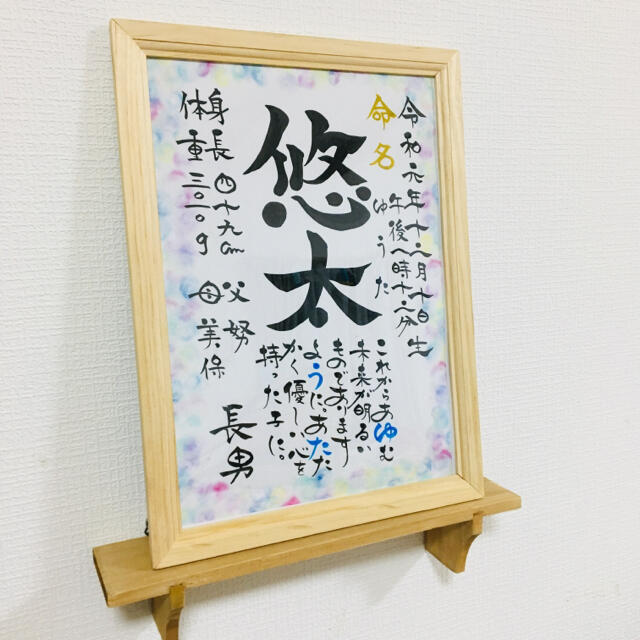 令和元年十二月十日生
午後一時十二分
命名
ゆうた
悠太
これからあゆむ
未来が明るい
ものであります
ように。あたた
かく優しい心を
持った子に…
身長四十九cm
体重三〇一〇g
父 努
母 美保
長男